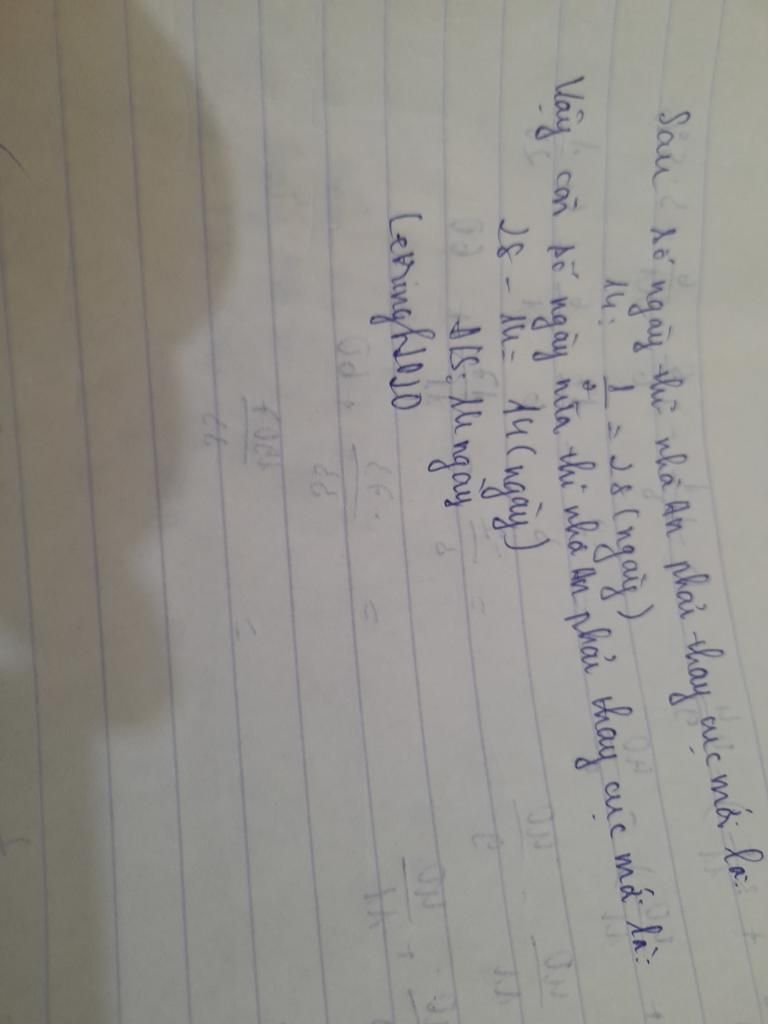 Sau số ngày thì nhà An phải thay cục mới là:
14 : 1/2 = 28 (ngày)
Vậy còn số ngày nữa thì nhà An phải thay cục mới là:
28 - 14 = 14 (ngày)
Đ/S: 14 ngày